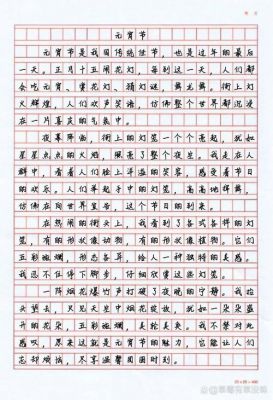 元宵节
元宵节是我国传统佳节，也是过年的最后
一天。正月十五闹花灯，每到这一天，人们都
会吃元宵、赏花灯、猜灯谜、舞龙舞。街上灯
火辉煌，人们欢声笑语，仿佛整个世界都沉浸
在一片喜庆的气氛中。
夜幕降临，街上的灯笼一个个亮起，犹如
星星点点的火焰，照亮了整个夜空。我走在人
群中，看着人们脸上洋溢的笑容，感受着节日
的欢乐，人们举起手中的灯笼，高高地挥舞，
仿佛在向世界宣告，这个节日的到来。
在热闹的街头上，我看到了各式各样的灯
笼，有的形状像动物，有的形状像植物，它们
五彩斑斓，形态各异，给人一种独特的美感。
我忍不住停下脚步，仔细欣赏这些灯笼。
一阵烟花爆竹声打破了夜晚的宁静。我抬
头望去，只见天空中烟花绽放，犹如一朵朵盛
开的花朵，五彩斑斓，美轮美奂。我不禁对此
感叹，原来这就是元宵节的魅力，它能让人们
忘却烦恼，尽享温馨团圆时刻。
20×20=400